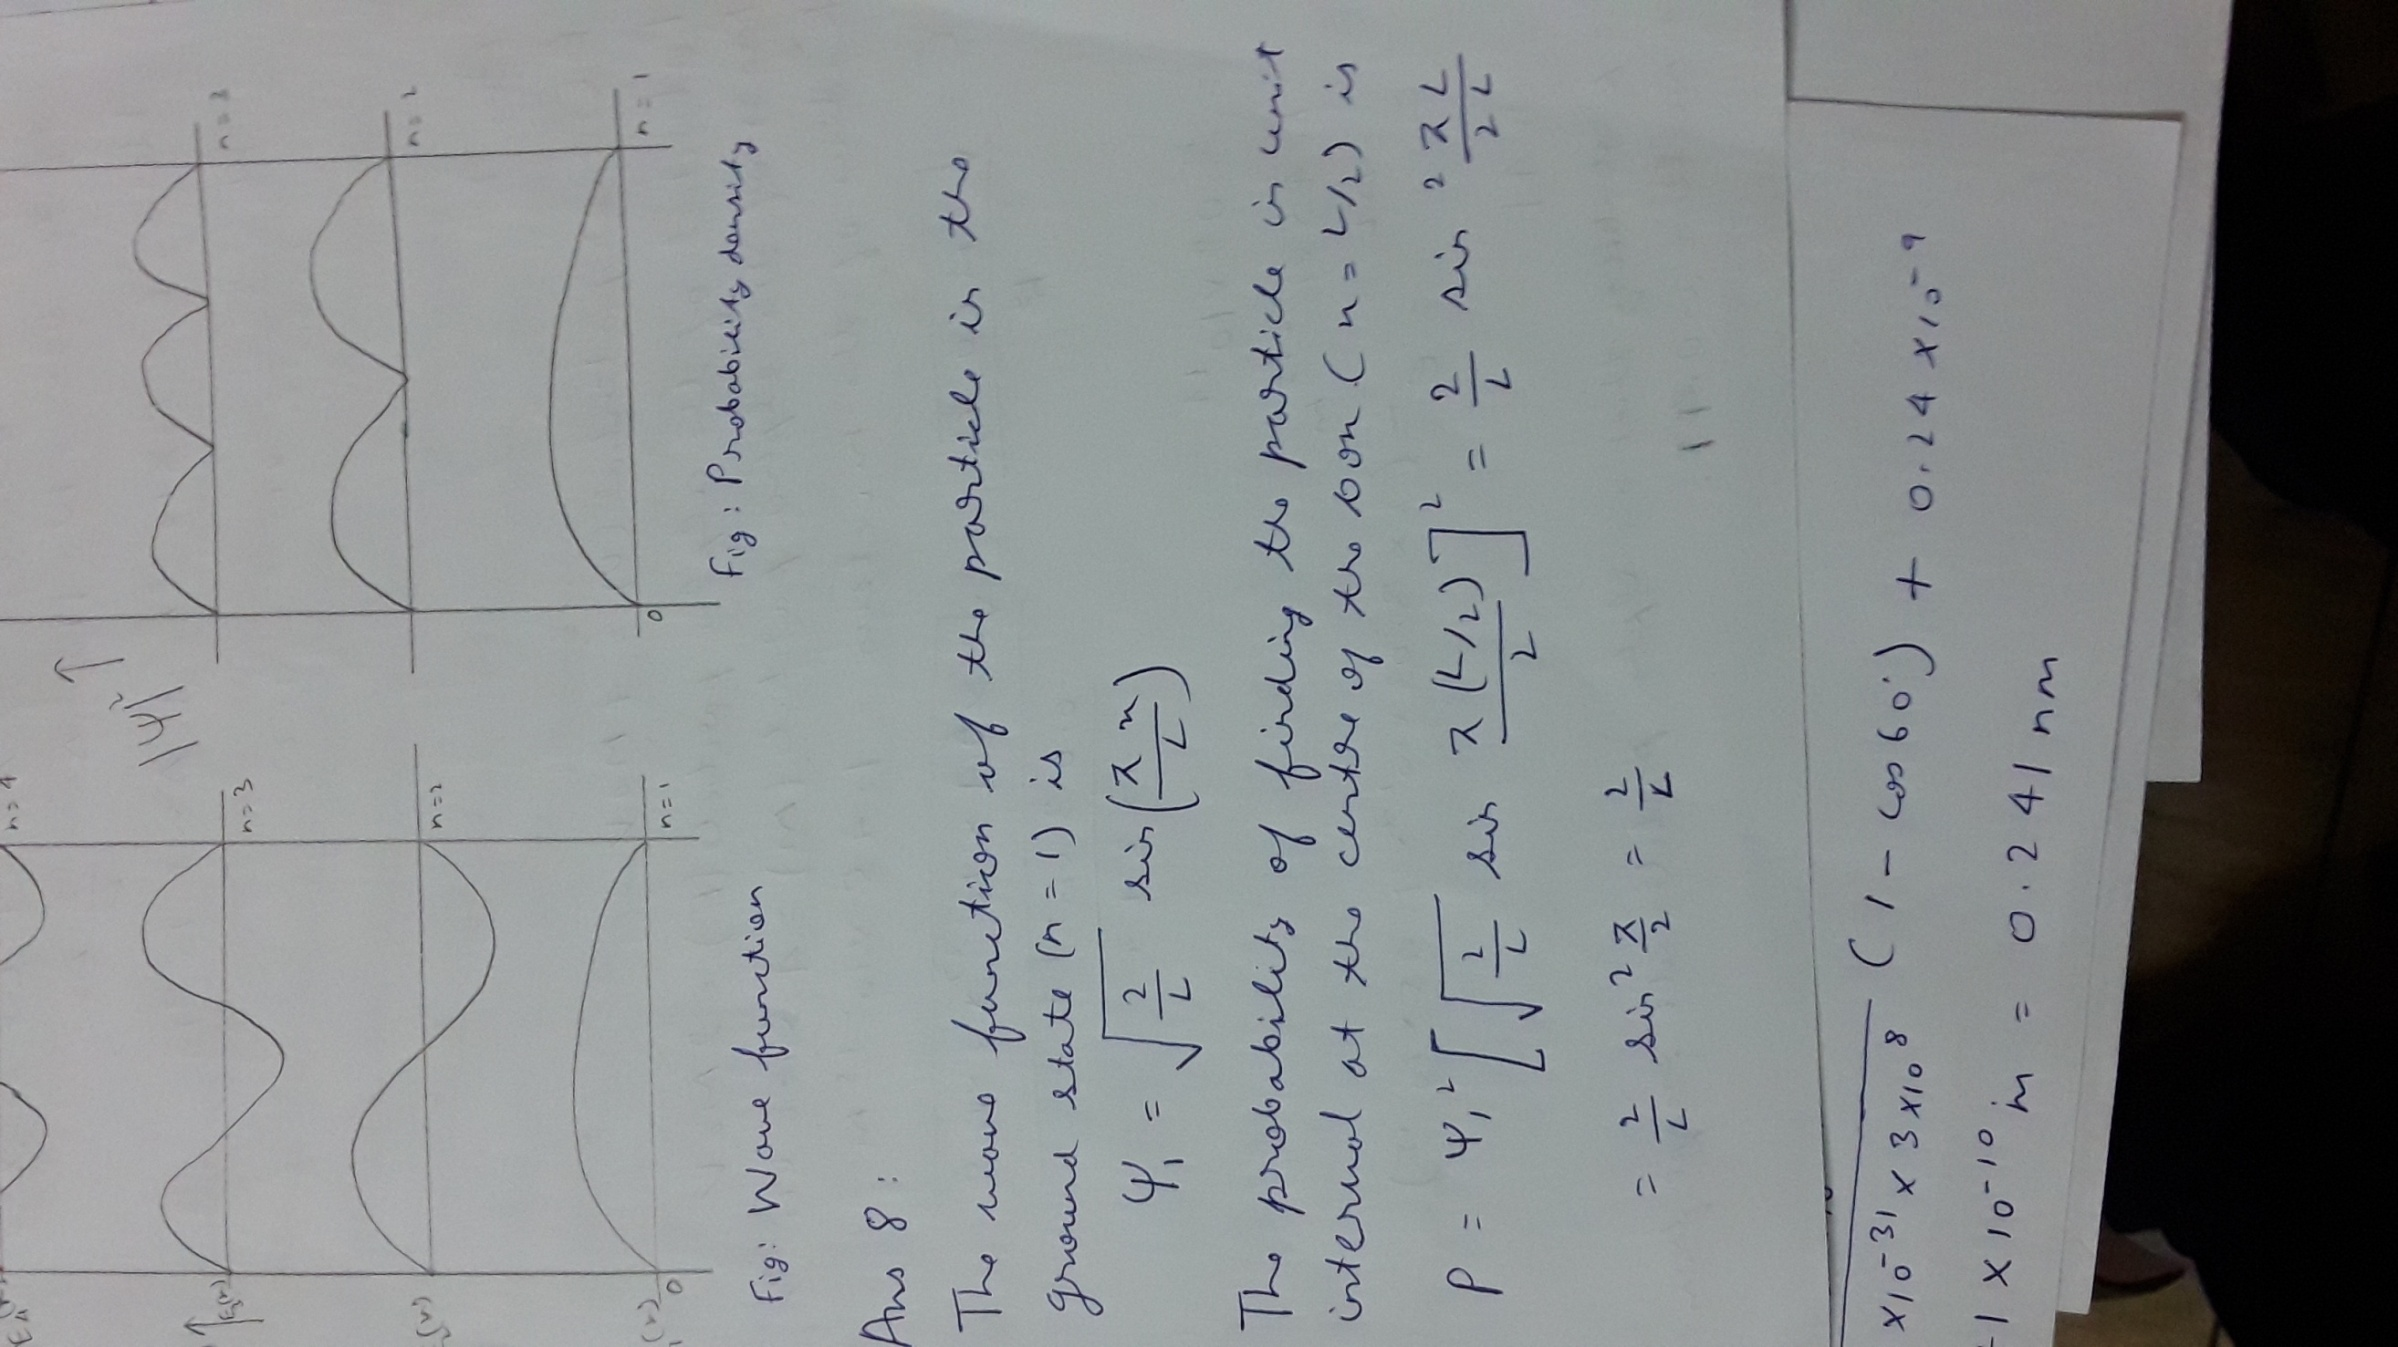 n=4
n=3
n=2
n=1
0
|ψ|²
n=3
n=2
n=1
0
Fig: Wave function
Fig: Probability density
Ans 8:
The wave function of the particle in the
ground state (n=1) is
ψ₁ = √(2/L) sin(πx/L)
The probability of finding the particle in unit
interval at the centre of the box (x = L/2) is
P = ψ₁² [√(2/L) sin π(L/2)/2]² = 2/L sin² πL/2L
= 2/L sin² π/2 = 2/L
×10⁻³¹ × 3 × 10⁸ (1 - cos 60°) + 0.24 × 10⁻⁹
1 × 10⁻¹⁰ m = 0.241 nm